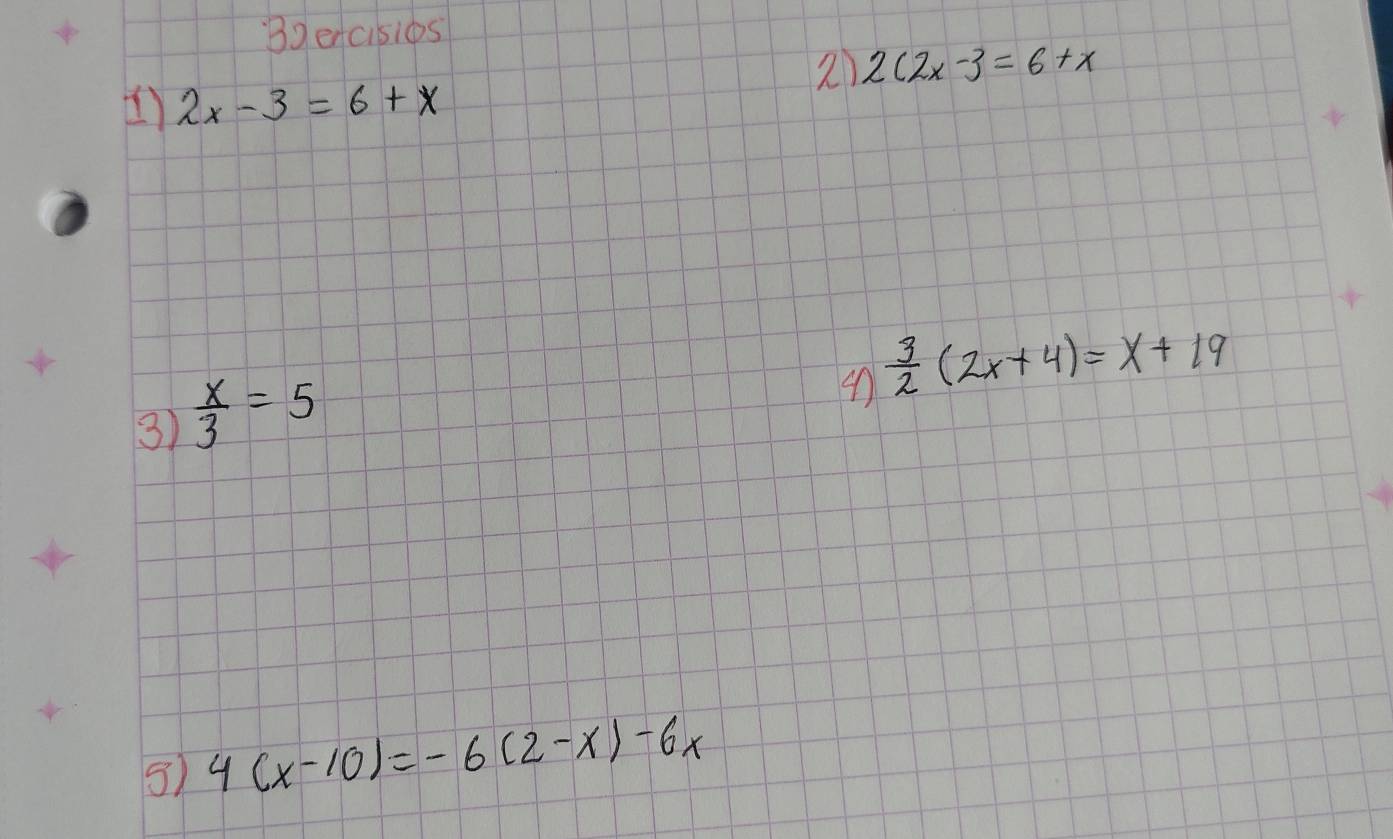 Ejercisios
1) 2x - 3 = 6 + x
2) 2(2x - 3 = 6 + x
3) x/3 = 5
4) 3/2 (2x + 4) = x + 19
5) 4 (x - 10) = - 6 (2 - x) - 6x